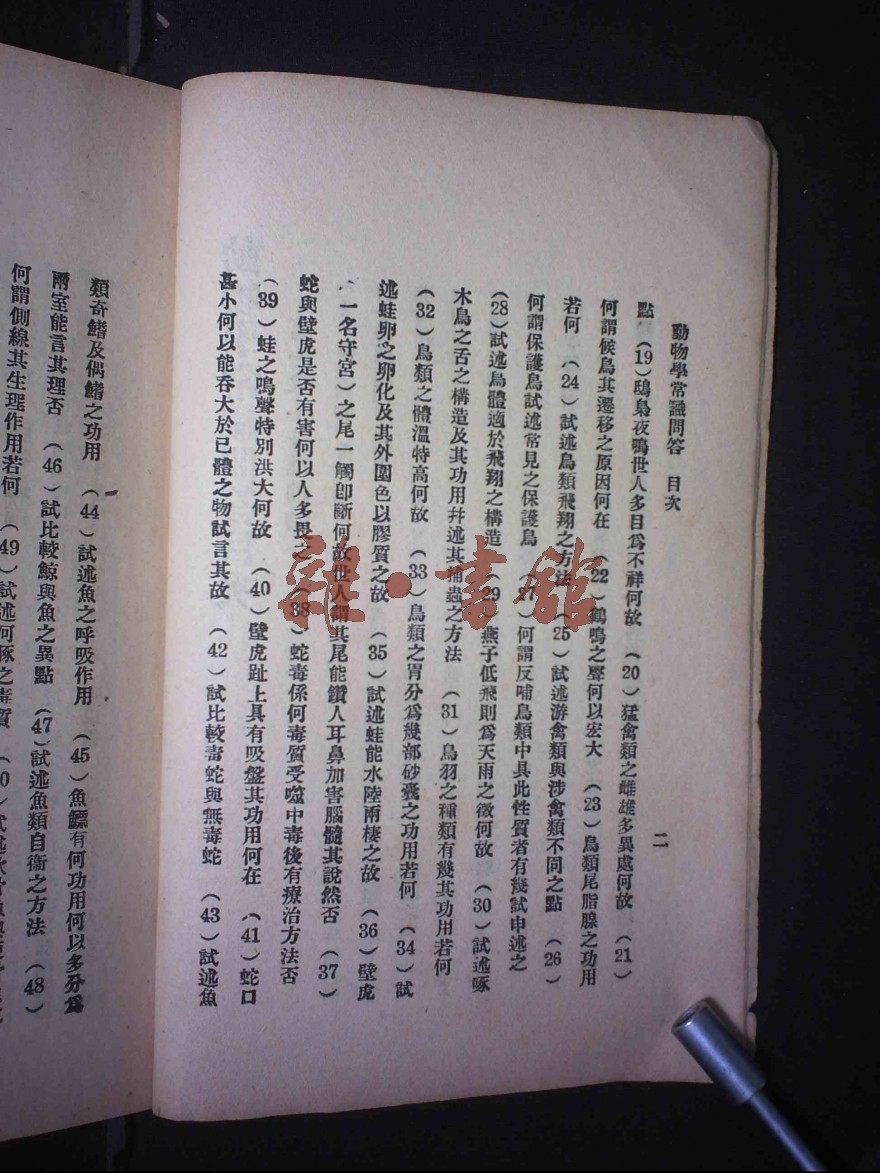 動物學常識問答　目次
二
點　(19)鴟梟夜鳴世人多目爲不祥何故　(20)猛禽類之雌雄多異處何故　(21)
何謂候鳥其遷移之原因何在　(22)鶴鳴之聲何以宏大　(23)鳥類尾脂腺之功用
若何　(24)試述鳥類飛翔之方法　(25)試述游禽類與涉禽類不同之點　(26)
何謂保護鳥試述常見之保護鳥　(27)何謂反哺鳥類中具此性質者有幾試申述之
(28)試述鳥體適於飛翔之構造　(29)燕子低飛則爲天雨之徵何故　(30)試述啄
木鳥之舌之構造及其功用幷述其捕蟲之方法　(31)鳥羽之種類有幾其功用若何
(32)鳥類之體溫特高何故　(33)鳥類之胃分爲幾部砂囊之功用若何　(34)試
述蛙卵之卵化及其外圍色以膠質之故　(35)試述蛙能水陸兩棲之故　(36)壁虎
(一名守宮)之尾一觸卽斷何故世人謂其尾能鑽人耳鼻加害腦髓其說然否　(37)
蛇與壁虎是否有害何以人多畏之　(38)蛇毒係何毒質受噬中毒後有療治方法否
(39)蛙之鳴聲特別洪大何故　(40)壁虎趾上具有吸盤其功用何在　(41)蛇口
甚小何以能吞大於己體之物試言其故　(42)試比較毒蛇與無毒蛇　(43)試述魚
類奇鰭及偶鰭之功用　(44)試述魚之呼吸作用　(45)魚鰾有何功用何以多分爲
兩室能言其理否　(46)試比較鯨與魚之異點　(47)試述魚類自衞之方法　(48)
何謂側線其生理作用若何　(49)試述河豚之毒質
雜·書館